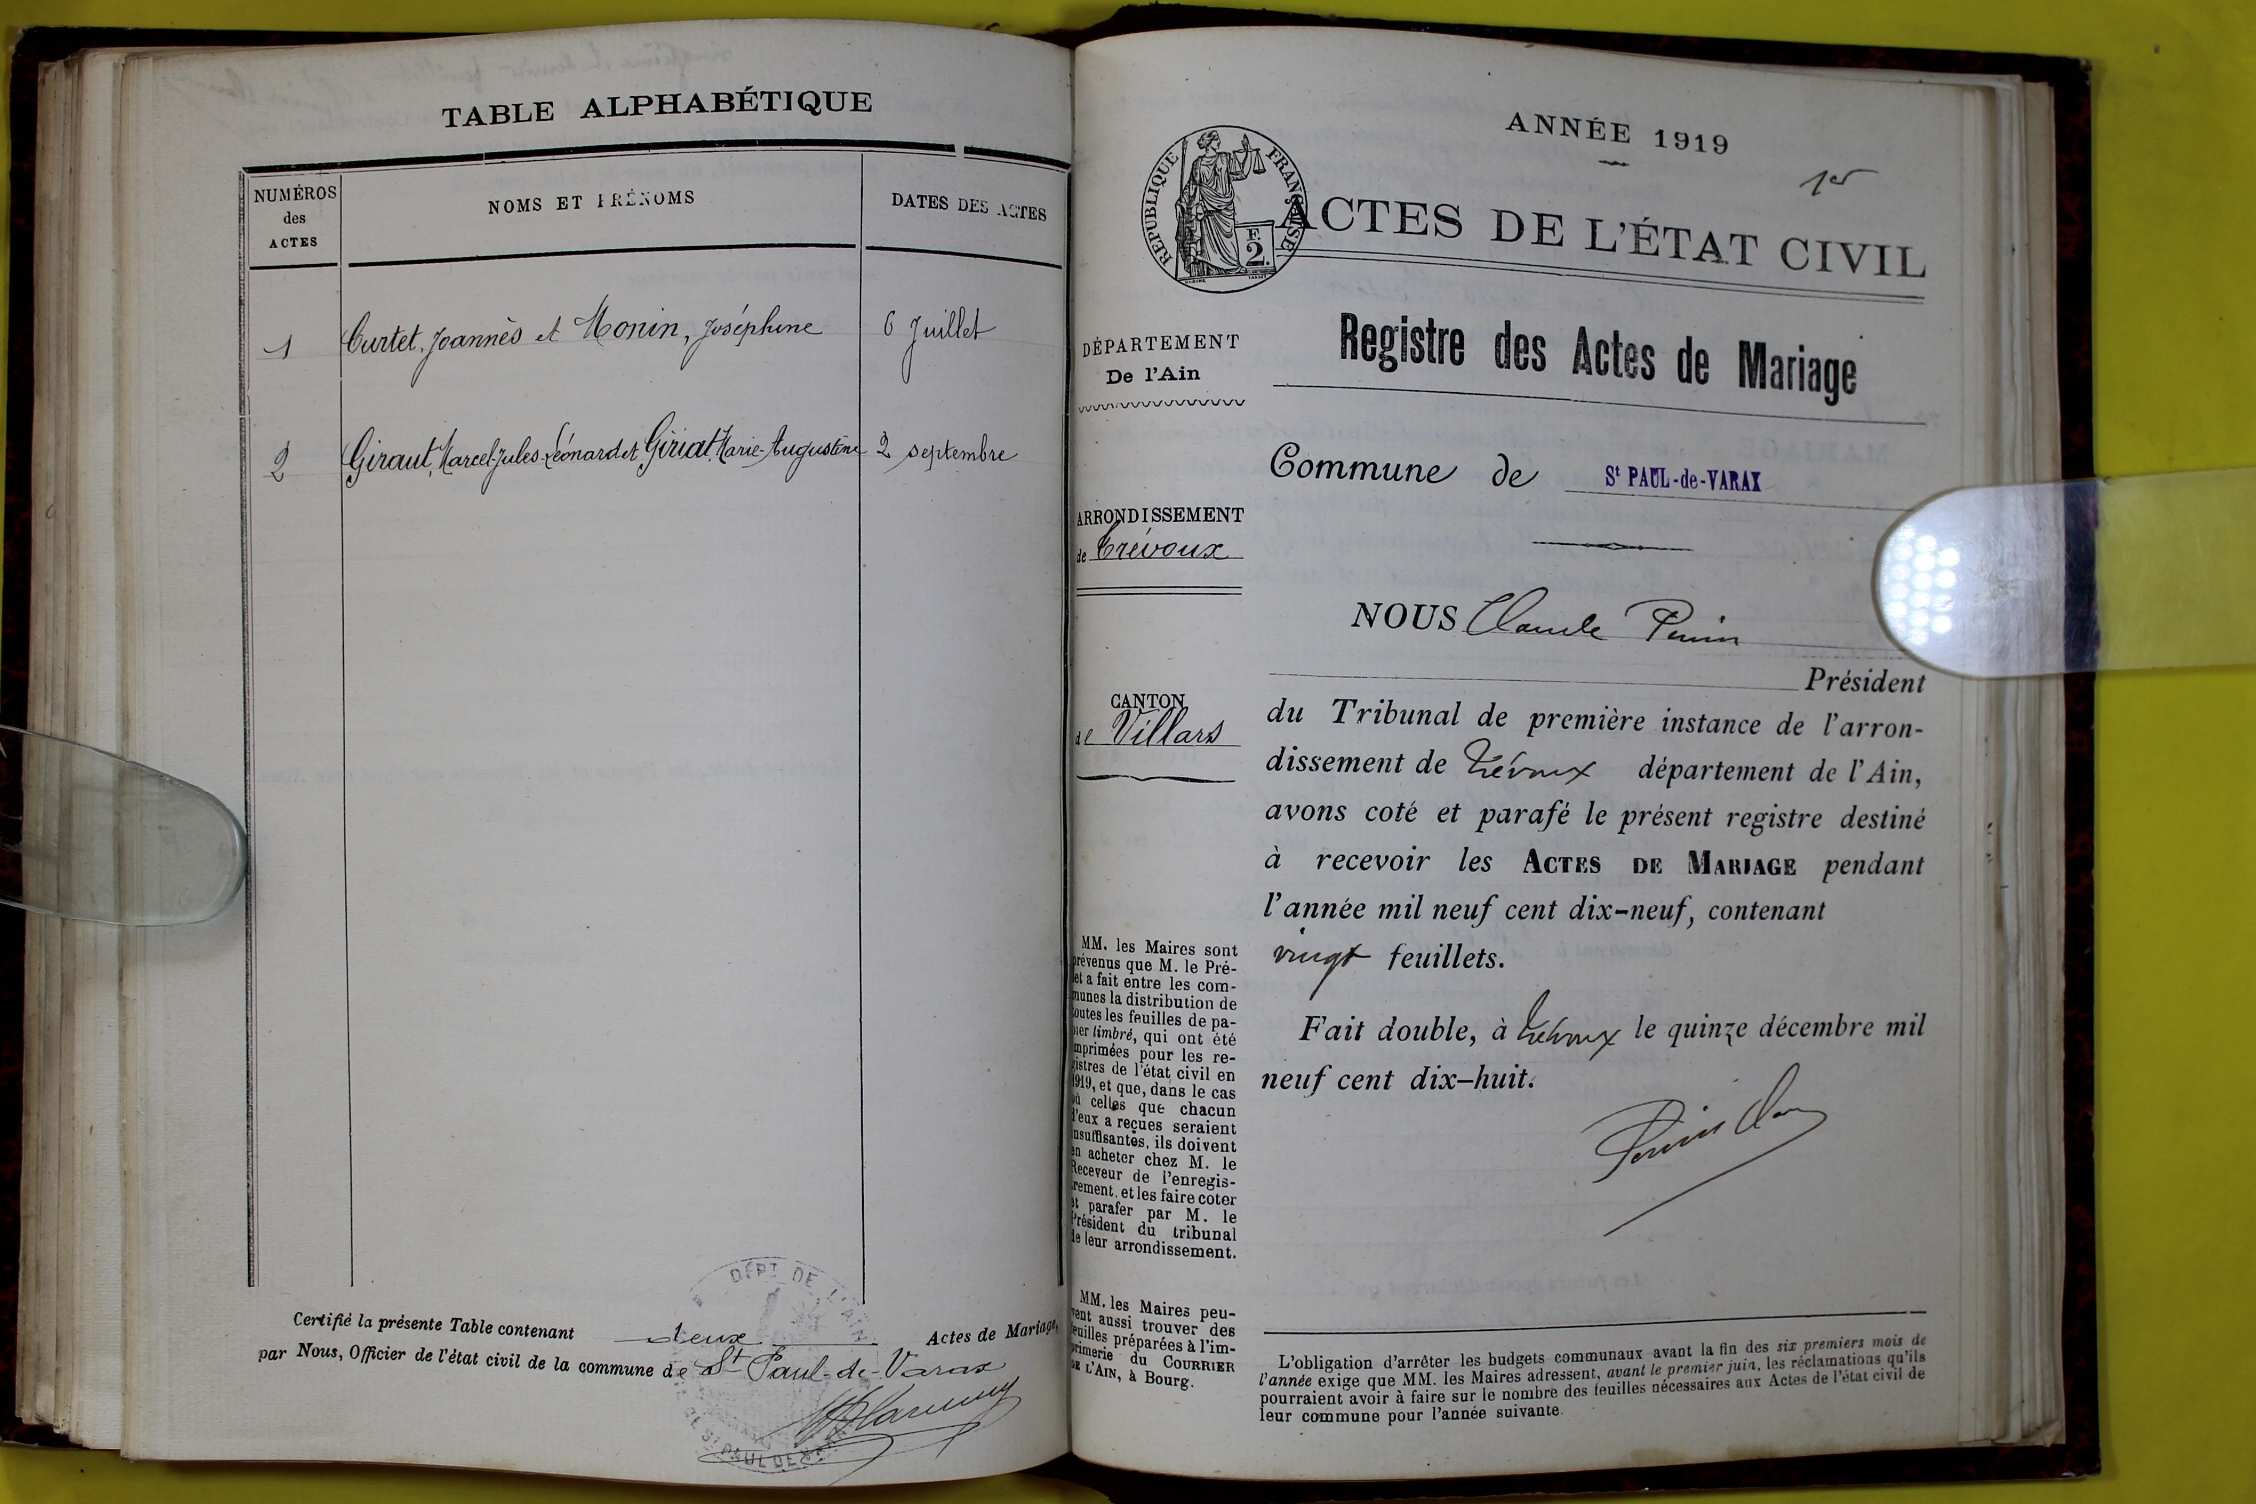 TABLE ALPHABÉTIQUE
NUMÉROS des ACTES
NOMS ET PRÉNOMS
DATES DES ACTES
1 Curtet, Joannès et Monin, Joséphine 6 Juillet
2 Giraut, Marcel-Jules-Léonard et Giriat, Marie-Augustine 2 septembre
Certifié la présente Table contenant deux Actes de Mariage,
par Nous, Officier de l'état civil de la commune de St Paul-de-Varax
DÉPT DE L'AIN
ANNÉE 1919
1er
RÉPUBLIQUE FRANÇAISE
F. 2.
ACTES DE L'ÉTAT CIVIL
Registre des Actes de Mariage
DÉPARTEMENT
De l'Ain
Commune de St PAUL-de-VARAX
ARRONDISSEMENT
de Trévoux
NOUS Claude Perrin
Président
CANTON
de Villars
du Tribunal de première instance de l'arron-
dissement de Trévoux département de l'Ain,
avons coté et parafé le présent registre destiné
à recevoir les ACTES DE MARIAGE pendant
l'année mil neuf cent dix-neuf, contenant
vingt feuillets.
Fait double, à Trévoux le quinze décembre mil
neuf cent dix-huit.
MM. les Maires sont
prévenus que M. le Pré-
fet a fait entre les com-
munes la distribution de
toutes les feuilles de pa-
pier timbré, qui ont été
imprimées pour les re-
gistres de l'état civil en
1919, et que, dans le cas
où celles que chacun
d'eux a reçues seraient
insuffisantes, ils doivent
en acheter chez M. le
Receveur de l'enregis-
trement, et les faire coter
et parafer par M. le
Président du tribunal
de leur arrondissement.
MM. les Maires peu-
vent aussi trouver des
feuilles préparées à l'im-
primerie du COURRIER
DE L'AIN, à Bourg.
L'obligation d'arrêter les budgets communaux avant la fin des six premiers mois de
l'année exige que MM. les Maires adressent, avant le premier juin, les réclamations qu'ils
pourraient avoir à faire sur le nombre des feuilles nécessaires aux Actes de l'état civil de
leur commune pour l'année suivante.